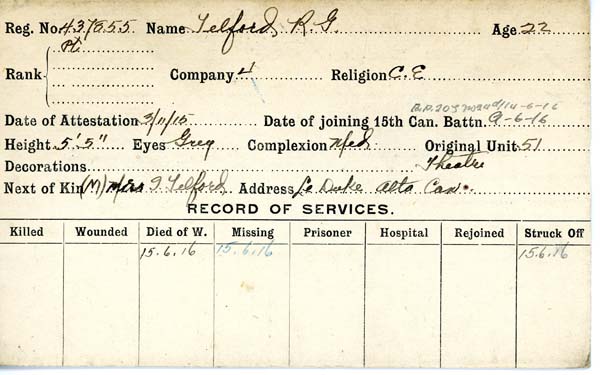 Reg. No. 437855 Name Telford, R. G. Age 22
Pt
Rank Company 4 Religion C. E
2nd/14-6-16
Date of Attestation 3/11/15 Date of joining 15th Can. Battn. 9-6-16
Height 5' 5" Eyes Grey Complexion Med Original Unit 51
Decorations Theatre
Next of Kin (M) Mrs I. Telford Address Le Duke Alta Can.
RECORD OF SERVICES.
Killed Wounded Died of W. Missing Prisoner Hospital Rejoined Struck Off
15.6.16 15.6.16 15.6.16